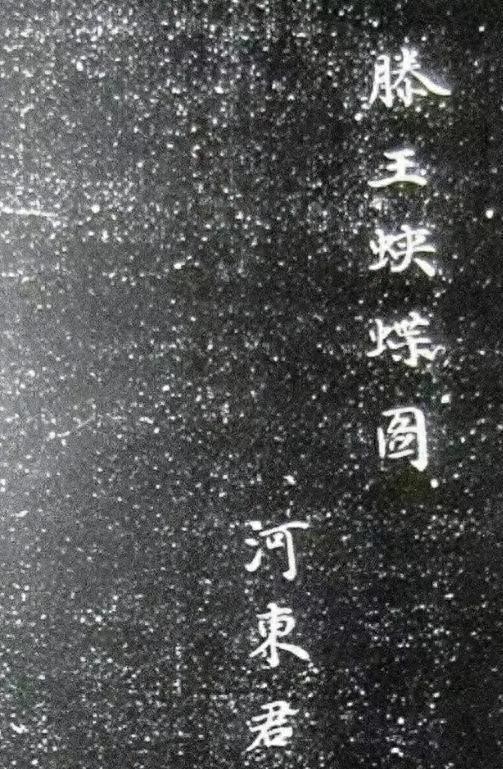 滕王蛺蝶图
河東君